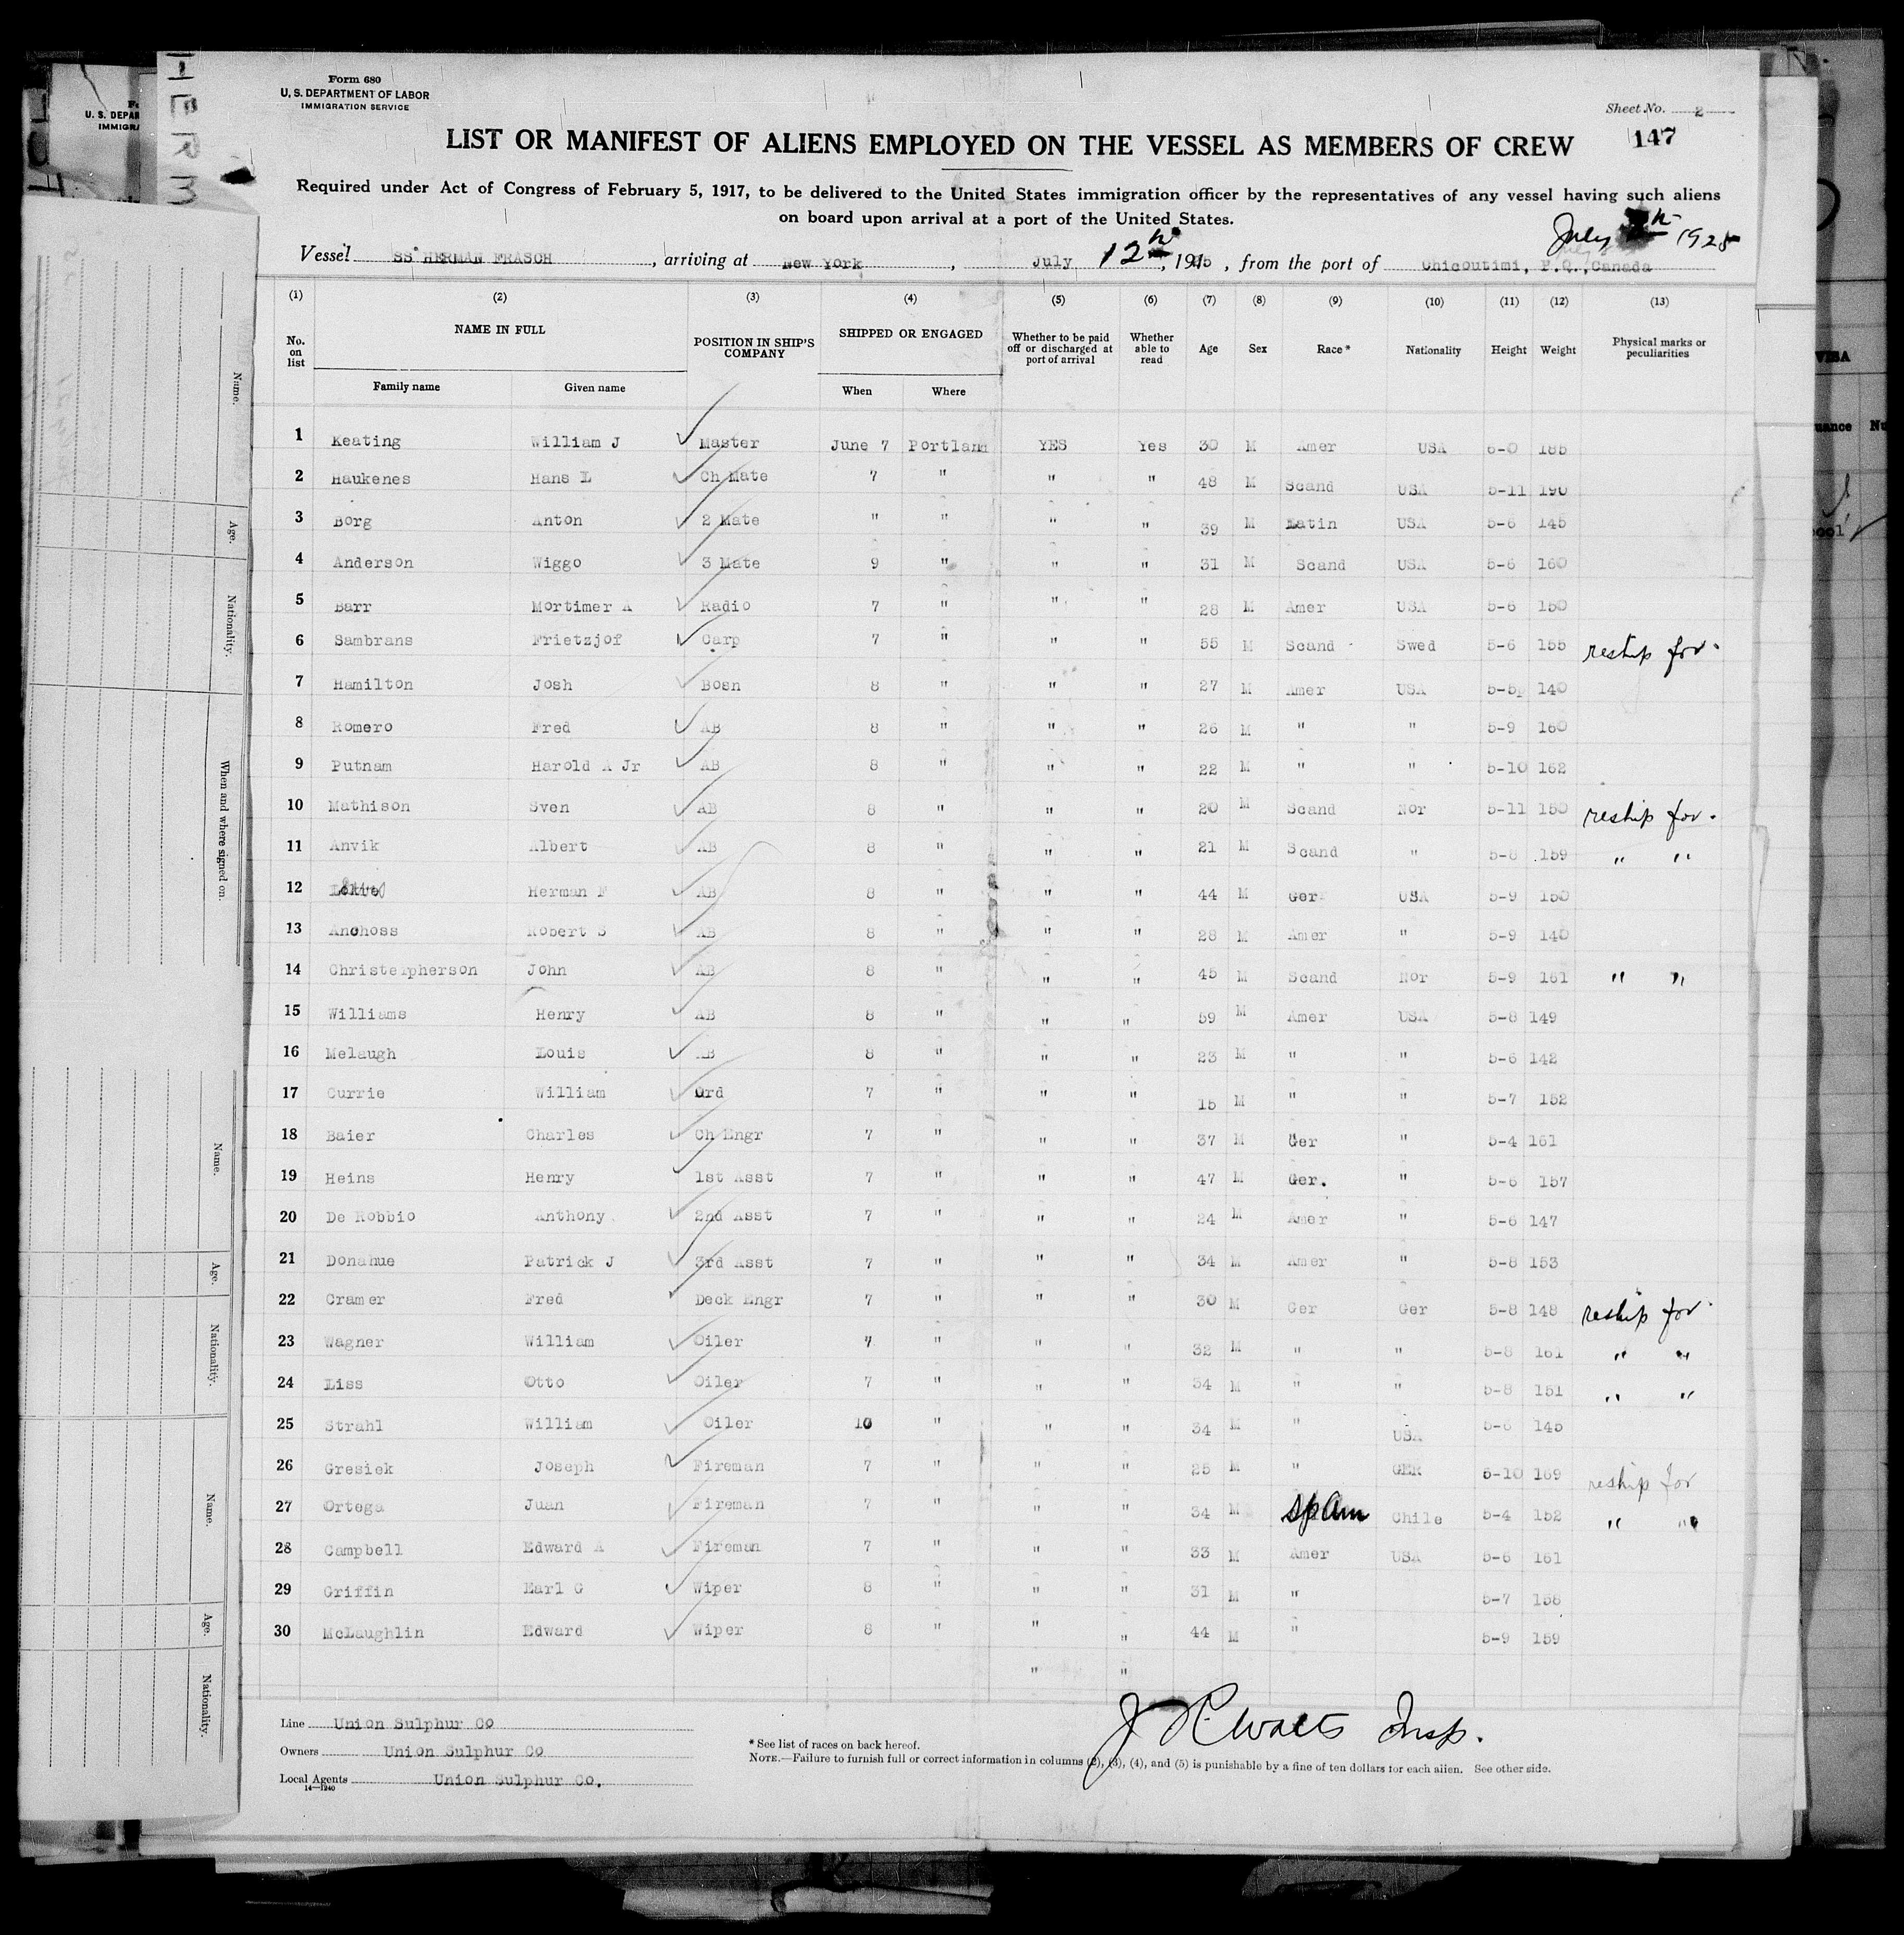 Form 680
U. S. DEPARTMENT OF LABOR
IMMIGRATION SERVICE
Sheet No. 2
147
LIST OR MANIFEST OF ALIENS EMPLOYED ON THE VESSEL AS MEMBERS OF CREW
Required under Act of Congress of February 5, 1917, to be delivered to the United States immigration officer by the representatives of any vessel having such aliens
on board upon arrival at a port of the United States.
July 1925
Vessel SS HERMAN FRASCH, arriving at New York, July 12th, 1925, from the port of Chicoutimi, P.Q., Canada
(1) (2) (3) (4) (5) (6) (7) (8) (9) (10) (11) (12) (13)
No. on list NAME IN FULL POSITION IN SHIP'S COMPANY SHIPPED OR ENGAGED Whether to be paid off or discharged at port of arrival Whether able to read Age Sex Race* Nationality Height Weight Physical marks or peculiarities
Family name Given name When Where
1 Keating William J Master June 7 Portland YES Yes 30 M Amer USA 6-0 185
2 Haukenes Hans L Ch Mate 7 " " " 48 M Scand USA 5-11 190
3 Borg Anton 2 Mate " " " " 39 M Latin USA 5-6 145
4 Anderson Wiggo 3 Mate 9 " " " 31 M Scand USA 5-6 160
5 Barr Mortimer A Radio 7 " " " 28 M Amer USA 5-6 150
6 Sambrans Frietzjof Carp 7 " " " 55 M Scand Swed 5-6 155 reship for.
7 Hamilton Josh Bosn 8 " " " 27 M Amer USA 5-5 140
8 Romero Fred AB 8 " " " 26 M " " 5-9 160
9 Putnam Harold A Jr AB 8 " " " 22 M " " 5-10 162
10 Mathison Sven AB 8 " " " 20 M Scand Nor 5-11 150 reship for.
11 Anvik Albert AB 8 " " " 21 M Scand " 5-8 159 " "
12 Herman F AB 8 " " " 44 M Ger USA 5-9 150
13 Anchoss Robert S AB 8 " " " 28 M Amer " 5-9 140
14 Christelpherson John AB 8 " " " 45 M Scand Nor 5-9 161 " "
15 Williams Henry AB 8 " " " 59 M Amer USA 5-8 149
16 Melaugh Louis AB 8 " " " 23 M " " 5-6 142
17 Currie William Ord 7 " " " 15 M " " 5-7 152
18 Baier Charles Ch Engr 7 " " " 37 M Ger " 5-4 161
19 Heins Henry 1st Asst 7 " " " 47 M Ger. " 5-6 157
20 De Robbio Anthony 2nd Asst 7 " " " 24 M Amer " 5-6 147
21 Donahue Patrick J 3rd Asst 7 " " " 34 M Amer " 5-8 153
22 Cramer Fred Deck Engr 7 " " " 30 M Ger Ger 5-8 148 reship for
23 Wagner William Oiler 7 " " " 32 M " " 5-8 161 " "
24 Liss Otto Oiler 7 " " " 34 M " " 5-8 151 " "
25 Strahl William Oiler 10 " " " 34 M " USA 5-6 145
26 Gresiek Joseph Fireman 7 " " " 25 M " GER 5-10 169 reship for
27 Ortega Juan Fireman 7 " " " 34 M Sp Am Chile 5-4 152 " "
28 Campbell Edward A Fireman 7 " " " 33 M Amer USA 5-6 161
29 Griffin Earl G Wiper 8 " " " 31 M " 5-7 158
30 McLaughlin Edward Wiper 8 " " " 44 M " 5-9 159
" "
Line Union Sulphur Co
Owners Union Sulphur Co
Local Agents Union Sulphur Co.
14—1240
Insp.
* See list of races on back hereof.
NOTE.—Failure to furnish full or correct information in columns (2), (3), (4), and (5) is punishable by a fine of ten dollars for each alien. See other side.
Name.
Age.
Nationality.
When and where signed on.
Name.
Age.
Nationality.
Name.
Age.
Nationality.